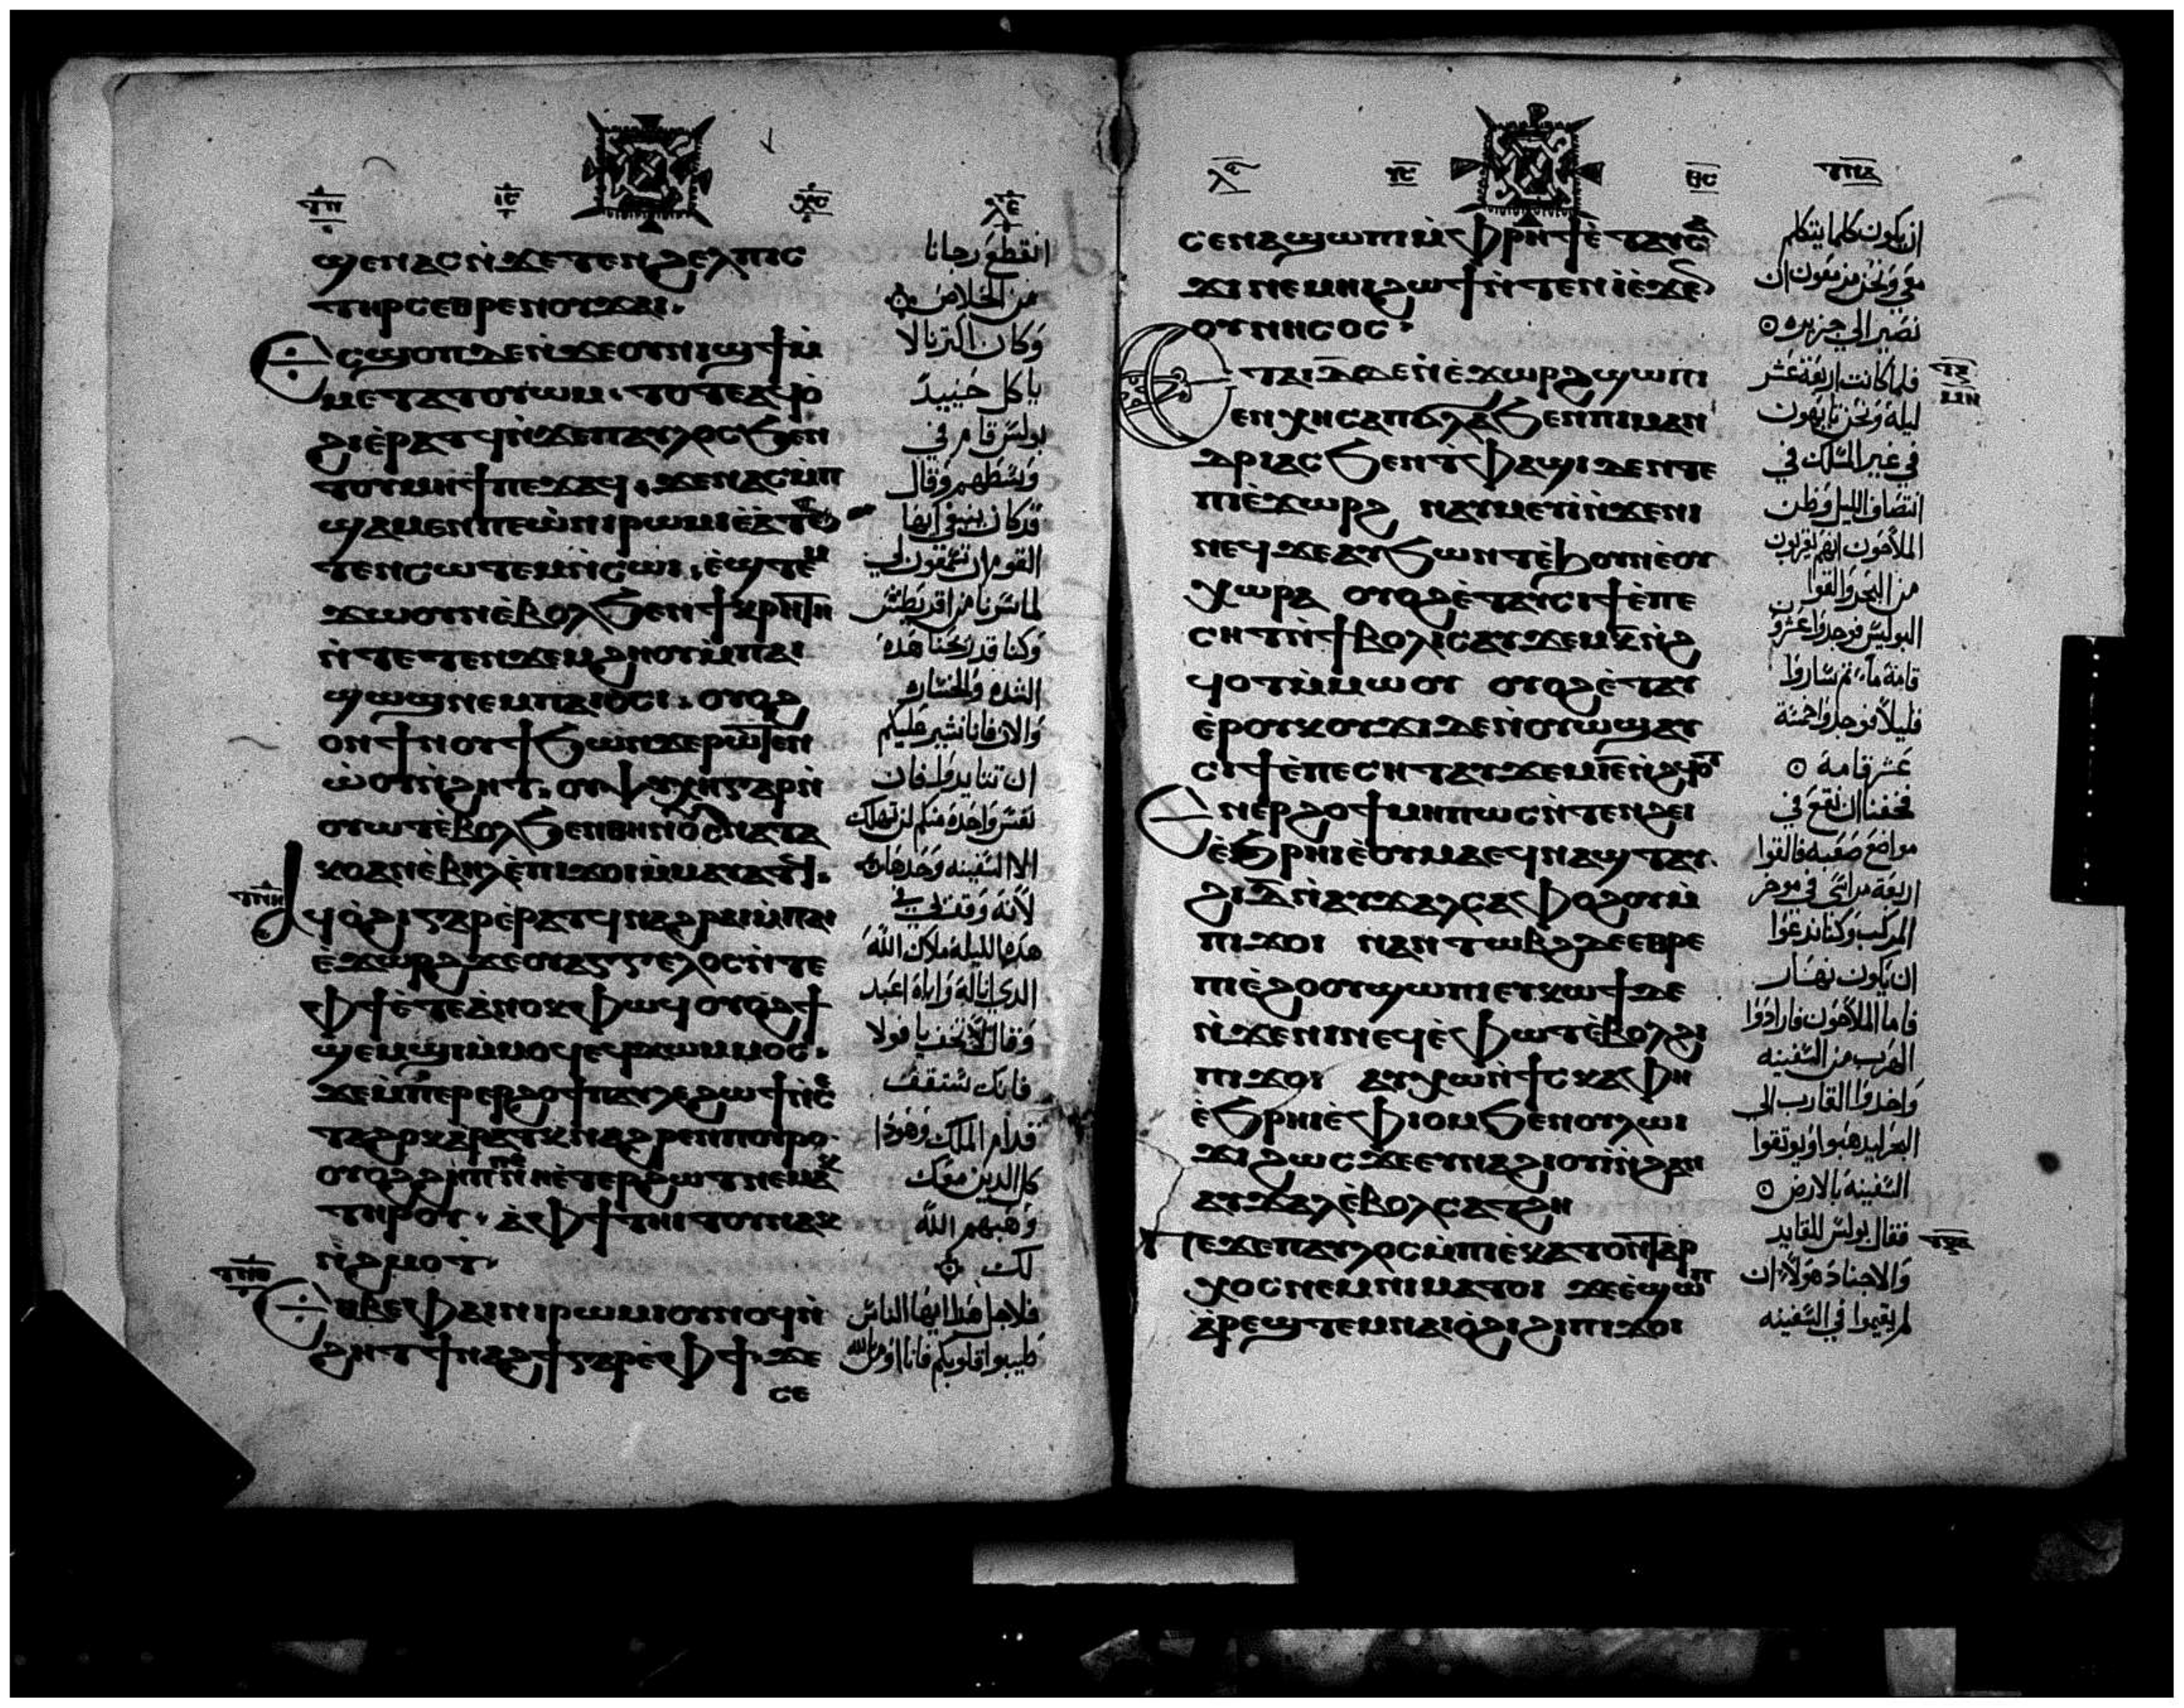 ϣⲉⲛⲁⲥ ⲛ̇ϫⲉ ⲧⲉⲛϩⲉⲗⲡⲓⲥ
ⲧⲏⲣⲥ ⲉⲑⲣⲉⲛⲟⲩϫⲁⲓ.
Ⲉⲥϣⲟⲡ ⲇⲉ ⲛ̇ϫⲉ ⲟⲩⲛⲓϣϯ ⲙ̇
ⲙⲉⲧⲁⲧⲟⲩⲱⲙ. ⲧⲟⲧⲉ ⲁϥⲟ̇
ϩⲓ ⲉ̇ⲣⲁⲧϥ ⲛ̇ϫⲉ ⲡⲁⲩⲗⲟⲥ ϧⲉⲛ
ⲧⲟⲩⲙⲏϯ ⲡⲉϫⲁϥ. ϫⲉ ⲛⲁⲥⲙ̇ⲡ
ϣⲁ ⲙⲉⲛ ⲡⲉ ⲱ̇ ⲛⲓⲣⲱⲙⲓ ⲉ̇ⲁ̇ⲧⲉ
ⲧⲉⲛⲥⲱⲧⲉⲙ ⲛ̇ⲥⲱⲓ. ⲉ̇ϣⲧⲉⲙ
ϫⲱⲟⲩⲛ ⲉ̇ⲃⲟⲗ ϧⲉⲛ ϯⲕⲣⲏⲧⲏ
ⲛ̇ⲧⲉⲧⲉⲛϫⲉⲙϩⲏⲟⲩ ⲙ̇ⲡⲁⲓ
ϣⲱϣ ⲛⲉⲙ ⲡⲁⲓⲟ̇ⲥⲓ. ⲟⲩⲟϩ
ⲟⲛ ϯⲛⲟⲩ ϯϧⲱⲛϫ ⲉⲣⲱⲧⲉⲛ
ⲱ̇ⲟⲩⲛ̇ϩⲏⲧ. ⲟⲩⲯⲩⲭⲏ ⲅⲁⲣ ⲛ̇
ⲟⲩⲱⲧ ⲉ̇ⲃⲟⲗ ϧⲉⲛ ⲑⲏⲛⲟⲩ ⲥⲛⲁⲧⲁ
ⲕⲟ ⲁⲛ ⲉ̇ⲃⲏⲗ ⲉ̇ⲡⲓϫⲟⲓ ⲙ̇ⲙⲁⲩⲁⲧϥ.
Ⲁϥⲟ̇ϩⲓ ⲅⲁⲣ ⲉ̇ⲣⲁⲧϥ ⲛⲁϩⲣⲁⲓ ⲙ̇ⲡⲁⲓ
ⲉ̇ϫⲱⲣϩ ϫⲉ ⲟⲩⲁⲅⲅⲉⲗⲟⲥ ⲛ̇ⲧⲉ
ⲫϯ ⲉ̇ⲧⲉ ⲁ̇ⲛⲟⲕ ⲫⲱϥ ⲟⲩⲟϩ ϯ
ϣⲉⲙϣⲓ ⲙ̇ⲙⲟϥ ⲉϥϫⲱ ⲙ̇ⲙⲟⲥ.
ϫⲉ ⲙ̇ⲡⲉⲣⲉⲣϩⲟϯ ⲡⲁⲩⲗⲉ ϩⲱϯ ⲛ̇ⲥⲉ
ⲧⲁϩⲟⲕ ⲉ̇ⲣⲁⲧⲕ ⲛⲁϩⲣⲉⲛ ⲡⲟⲩⲣⲟ.
ⲟⲩⲟϩ ϩⲏⲡⲡⲉ ⲛⲏⲉ̇ⲧⲉⲣϩⲱⲧ ⲛⲉⲙⲁⲕ
ⲧⲏⲣⲟⲩ. ⲁ̇ ⲫϯ ⲧⲏⲓⲧⲟⲩ ⲛⲁⲕ
ⲛ̇ϩⲙⲟⲧ.
Ⲉⲑⲃⲉ ⲫⲁⲓ ⲛⲓⲣⲱⲙⲓ ⲟⲩⲛⲟϥ ⲛ̇
ϩⲏⲧ ϯⲛⲁϩϯ ⲅⲁⲣ ⲉ̇ⲫϯ. ϫⲉ
ⲥⲉ
انقطع رجانا
من الخلاص
وكان اكترنا لا
ياكل حينيد
بولس قام في
وسطهم وقال
قد كان ينبغي ايها
وكنا قد ربحنا هده
الشده والخساره
والان فانا نشير عليكم
نفس واحده منكم لن تهلك
الا السفينه وحدها
لانه وقف بي في
هده الليله ملاك الله
الدي انا له واياه اعبد
وقال لا تخف يا فولا
فانك ستقف
قدام الملك وهودا
كل الدين معك
وهبهم الله
لك
فلاجل هدا ايها الناس
طيبوا قلوبكم فانا اومن بالله
ⲥⲉⲛⲁϣⲱⲡⲓ ⲙ̇ⲫⲣⲏϯ ⲉ̇ⲧⲁⲩⲥⲁ
ϫⲓ ⲛⲉⲙⲏⲓ ϩⲱϯ ⲛ̇ⲧⲉⲛⲓ̇ ⲉ̇ϫⲉⲛ
ⲟⲩⲛⲏⲥⲟⲥ.
Ⲉⲧⲁ ⲓⲇ ⲇⲉ ⲛ̇ⲉ̇ϫⲱⲣϩ ϣⲱⲡⲓ
ⲉⲛⲭⲏ ⲥⲁⲡϭⲗⲁ ϧⲉⲛ ⲡⲓⲙⲁⲛ
ⲇⲣⲓⲁⲥ ϧⲉⲛ ⲧⲫⲁϣⲓ ⲇⲉ ⲛⲧⲉ
ⲡⲓⲉ̇ϫⲱⲣϩ ⲛⲁⲩⲙⲉⲩⲓ̇ ⲛ̇ϫⲉ ⲛⲓ
ⲛⲉϥ ϫⲉ ⲁⲩϧⲱⲛⲧ ⲉ̇ϩⲟⲩⲛ ⲉ̇ⲟⲩ
ⲭⲱⲣⲁ ⲟⲩⲟϩ ⲉ̇ⲧⲁⲩⲥⲓϯ ⲉ̇ⲡⲉ
ⲥⲏⲧ ⲛ̇ϯⲃⲟⲗⲓⲥ ⲁⲩϫⲉⲙ ⲕ ⲛ̇ϩ
ϥⲟⲧ ⲙ̇ⲙⲱⲟⲩ ⲟⲩⲟϩ ⲉ̇ⲧⲁⲩ
ⲉ̇ⲣⲟⲩⲕⲟⲩϫⲓ ⲇⲉ ⲛ̇ⲟⲩⲱϣ ⲁⲩ
ⲥⲓϯ ⲉ̇ⲡⲉⲥⲏⲧ ⲁⲩϫⲉⲙ
Ⲉⲛⲉⲣϩⲟϯ ⲙⲏⲡⲱⲥ ⲛ̇ⲧⲉⲛϩⲉⲓ
ⲉ̇ϧⲣⲏⲓ ⲉ̇ⲟⲩⲙⲁ ⲉϥⲛⲁϣⲧ ⲁⲩ
ϩⲓ ⲇ ⲛ̇ⲁⲩϫⲁⲗ ⲥⲁⲫⲁϩⲟⲩ ⲙ̇
ⲡⲓϫⲟⲓ ⲛⲁⲛⲧⲱⲃϩ ⲇⲉ ⲉⲑⲣⲉ
ⲡⲓⲉ̇ϩⲟⲟⲩ ϣⲱⲡⲓ ⲉⲩⲕⲱϯ ⲇⲉ
ⲛ̇ϫⲉ ⲛⲓⲛⲉϥ ⲉ̇ⲫⲱⲧ ⲉ̇ⲃⲟⲗ ϩⲓ
ⲡⲓϫⲟⲓ ⲁⲩⲭⲱ ⲛ̇ϯⲥⲕⲁⲫⲏ
ⲉ̇ϧⲣⲏⲓ ⲉ̇ⲫⲓⲟⲙ ϧⲉⲛ ⲟⲩⲗⲱⲓ
ϫⲓ ϩⲱⲥ ϫⲉ ⲉⲩⲛⲁϩⲓⲟⲩⲓ̇ ⲛ̇ϩⲁⲛ
ⲁⲩϫⲁⲗ ⲉ̇ⲃⲟⲗ ⲥⲁⲧϩⲏ
Ⲡⲉϫⲉ ⲡⲁⲩⲗⲟⲥ ⲙ̇ⲡⲓⲉ̇ⲕⲁⲧⲟⲛⲧⲁⲣ
ⲭⲟⲥ ⲛⲉⲙ ⲛⲓⲙⲁⲧⲟⲓ ϫⲉ ⲉ̇ϣⲱⲡ
ⲁ̇ⲣⲉϣⲧⲉⲙ ⲛⲁⲓ ⲟ̇ϩⲓ ϩⲓ ⲡⲓϫⲟⲓ
ان يكون كلما يتكلم
نصير الي جزيره
فلما كانت اربعة عشر
ليلة ونحن تايهون
في غير المسلك في
انتصاف الليل وظن
الملاحون انهم يقربون
من البحر والقوا
البوليس فوجدوا عشرون
قامة ماء تم ساروا
قليلا فوجدوا خمسة
عشر قامة
فخفنا ان نقع في
مواضع صعبه فالقوا
اربعة مراسي في موخر
المركب وكنا ندعوا
ان يكون نهار
فاما الملاحون فارادوا
الهرب من السفينه
واخدوا القارب الي
البحر ليدهبوا ويوتقوا
السفينه بالارض
فقال بولس للقايد
والاجناد هولاء ان
لم يقيموا في السفينه